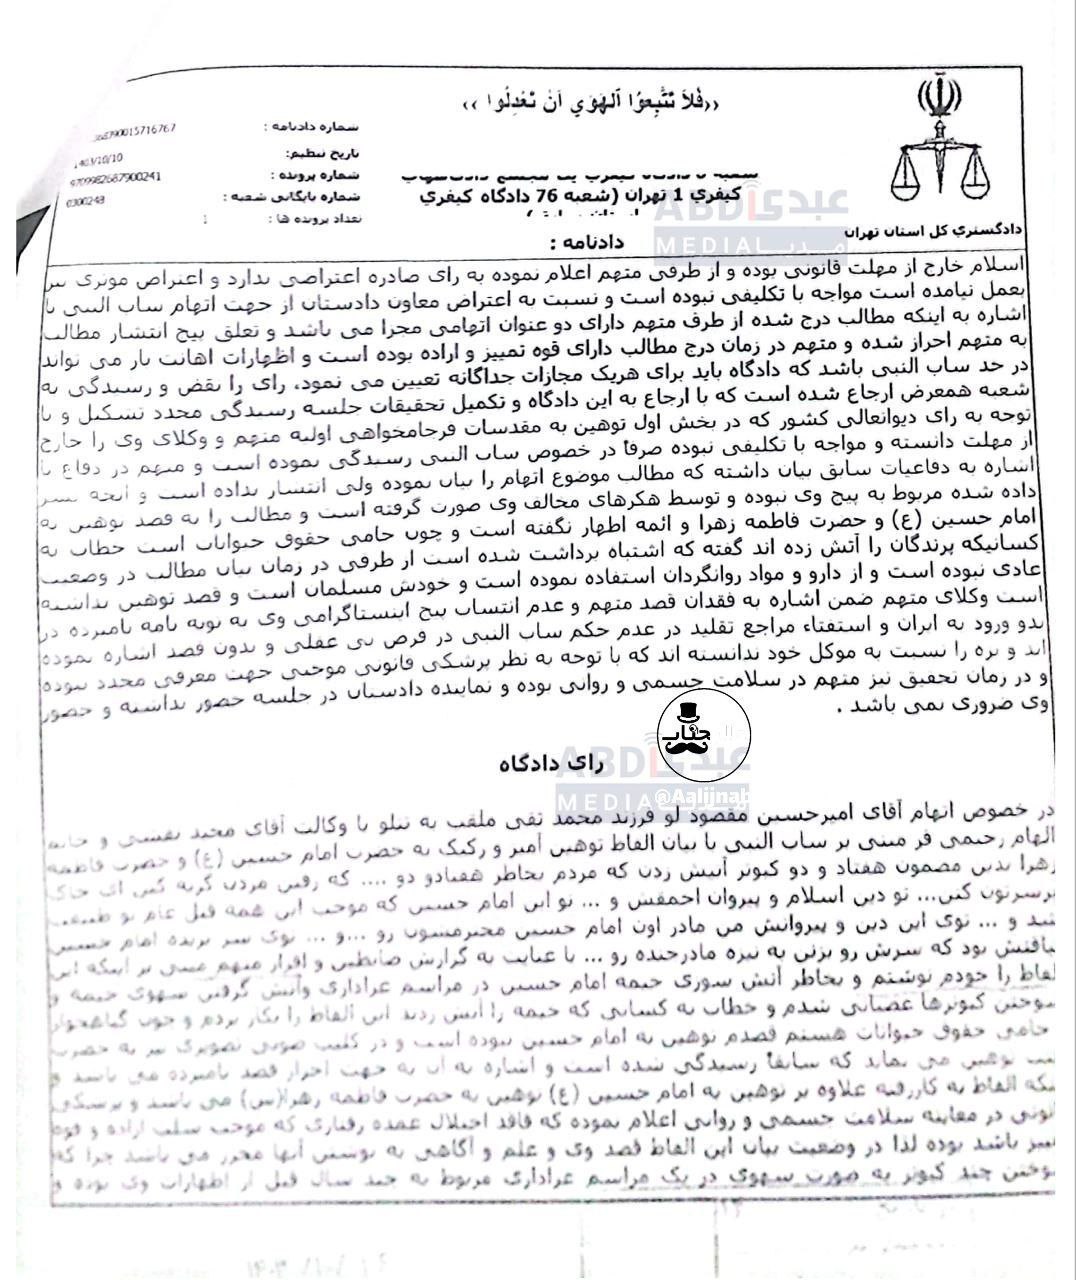 ‹‹فَلاَ تَتَّبِعُوا الْهَوَي اَنْ تَعْدِلُوا ››
شماره دادنامه : 68790015716767
تاریخ تنظیم: 1403/10/10
شماره پرونده : 9709982687900241
شماره بایگانی شعبه : 0300248
تعداد پرونده ها : 1
کیفري 1 تهران (شعبه 76 دادگاه کیفري
دادگستري کل استان تهران
عبدی ABDI
مدیا MEDIA
دادنامه :
اسلام خارج از مهلت قانونی بوده و از طرفی متهم اعلام نموده به رای صادره اعتراضی ندارد و اعتراض موثری نیز
بعمل نیامده است مواجه با تکلیفی نبوده است و نسبت به اعتراض معاون دادستان از جهت اتهام ساب النبی با
اشاره به اینکه مطالب درج شده از طرف متهم دارای دو عنوان اتهامی مجزا می باشد و تعلق پیج انتشار مطالب
به متهم احراز شده و متهم در زمان درج مطالب دارای قوه تمییز و اراده بوده است و اظهارات اهانت بار می تواند
در حد ساب النبی باشد که دادگاه باید برای هریک مجازات جداگانه تعیین می نمود، رای را نقض و رسیدگی به
شعبه همعرض ارجاع شده است که با ارجاع به این دادگاه و تکمیل تحقیقات جلسه رسیدگی مجدد تشکیل و با
توجه به رای دیوانعالی کشور که در بخش اول توهین به مقدسات فرجامخواهی اولیه متهم و وکلای وی را خارج
از مهلت دانسته و مواجه با تکلیفی نبوده صرفاً در خصوص ساب النبی رسیدگی نموده است و متهم در دفاع با
اشاره به دفاعیات سابق بیان داشته که مطالب موضوع اتهام را بیان نموده ولی انتشار نداده است و آنچه نشر
داده شده مربوط به پیج وی نبوده و توسط هکرهای مخالف وی صورت گرفته است و مطالب را به قصد توهین به
امام حسین (ع) و حضرت فاطمه زهرا و ائمه اظهار نگفته است و چون حامی حقوق حیوانات است خطاب به
کسانیکه پرندگان را آتش زده اند گفته که اشتباه برداشت شده است از طرفی در زمان بیان مطالب در وضعیت
عادی نبوده است و از دارو و مواد روانگردان استفاده نموده است و خودش مسلمان است و قصد توهین نداشته
است وکلای متهم ضمن اشاره به فقدان قصد متهم و عدم انتساب پیج اینستاگرامی وی به توبه نامه نامبرده در
بدو ورود به ایران و استفتاء مراجع تقلید در عدم حکم ساب النبی در فرض بی عقلی و بدون قصد اشاره نموده
اند و بزه را نسبت به موکل خود ندانسته اند که با توجه به نظر پزشکی قانونی موجبی جهت معرفی مجدد نبوده
و در زمان تحقیق نیز متهم در سلامت جسمی و روانی بوده و نماینده دادستان در جلسه حضور نداشته و حضور
وی ضروری نمی باشد .
جناب
@Aalijnab
عبدی ABDI
مدیا MEDIA
رای دادگاه
در خصوص اتهام آقای امیرحسین مقصود لو فرزند محمد تقی ملقب به تتلو با وکالت آقای مجید نقشی و خانم
الهام رحیمی فر مبنی بر ساب النبی با بیان الفاظ توهین آمیز و رکیک به حضرت امام حسین (ع) و حضرت فاطمه
زهرا بدین مضمون هفتاد و دو کبوتر آتیش زدن که مردم بخاطر هفتادو دو .... که رفتن مردن گریه کنن ای خاک
برسرتون کنن... تو دین اسلام و پیروان احمقش و ... تو این امام حسین که موجب این همه قتل عام تو طبیعت
شد و ... توی این دین و پیروانش من مادر اون امام حسین محترمتون رو ...و ... توی سر بریده امام حسین
که سرش رو بزنن به نیزه مادرجنده رو ... با عنایت به گزارش ضابطین و اقرار متهم مبنی بر اینکه این
الفاظ را خودم نوشتم و بخاطر آتش سوزی خیمه امام حسین در مراسم عزاداری وآتش گرفتن سهوی خیمه و
سوختن کبوترها عصبانی شدم و خطاب به کسانی که خیمه را آتش زدند این الفاظ را بکار بردم و چون گیاهخوار
حامی حقوق حیوانات هستم قصدم توهین به امام حسین نبوده است و در کلیپ صوتی تصویری نیز به حضرت
توهین می نماید که سابقاً رسیدگی شده است و اشاره به آن به جهت احراز قصد نامبرده می باشد و
الفاظ به کاررفته علاوه بر توهین به امام حسین (ع) توهین به حضرت فاطمه زهرا(س) می باشد و پزشکی
قانونی در معاینه سلامت جسمی و روانی اعلام نموده که فاقد اختلال عمده رفتاری که موجب سلب اراده و قوه
تمییز باشد بوده لذا در وضعیت بیان این الفاظ قصد وی و علم و آگاهی به نوشتن آنها محرز می باشد چرا که
سوختن چند کبوتر به صورت سهوی در یک مراسم عزاداری مربوط به چند سال قبل از اظهارات وی بوده و